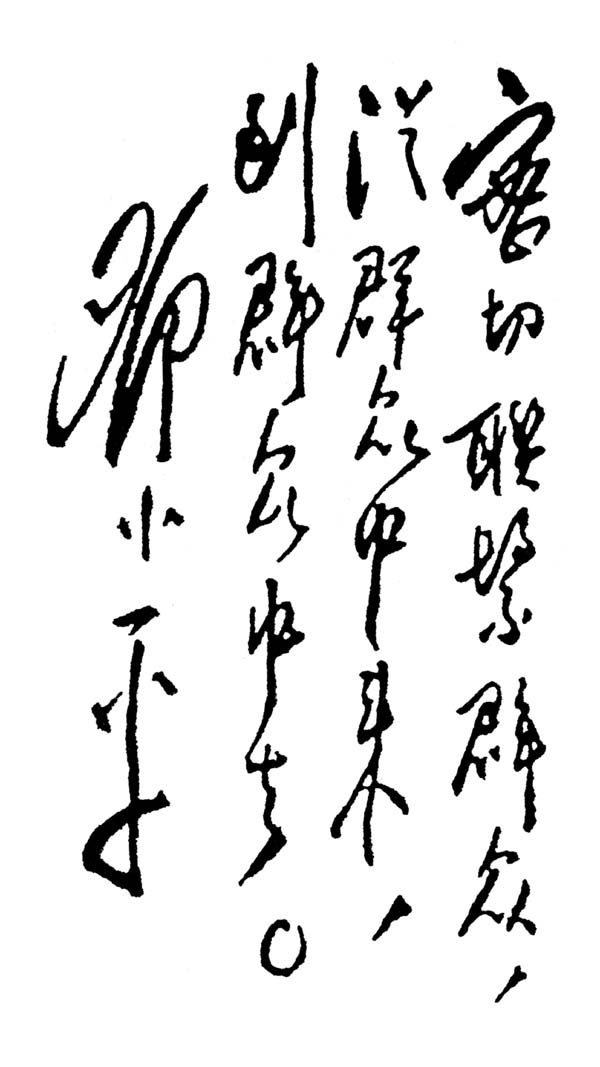 密切聯繫群众，
從群众中来，
到群众中去。
邓小平